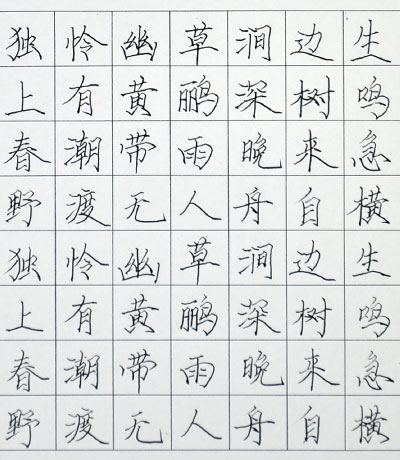 独怜幽草涧边生
上有黄鹂深树鸣
春潮带雨晚来急
野渡无人舟自横
独怜幽草涧边生
上有黄鹂深树鸣
春潮带雨晚来急
野渡无人舟自横